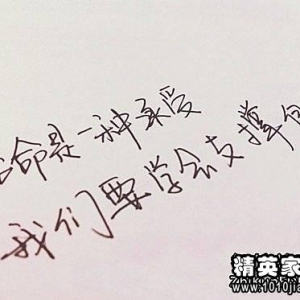 命是一种承受
我们要学会支撑
精英家
www.1010jia